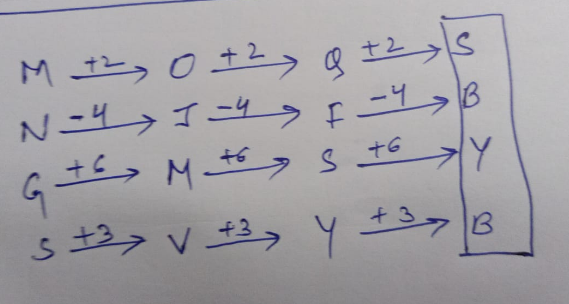 M +2 → O +2 → Q +2 → S
N -4 → J -4 → F -4 → B
G +6 → M +6 → S +6 → Y
S +3 → V +3 → Y +3 → B